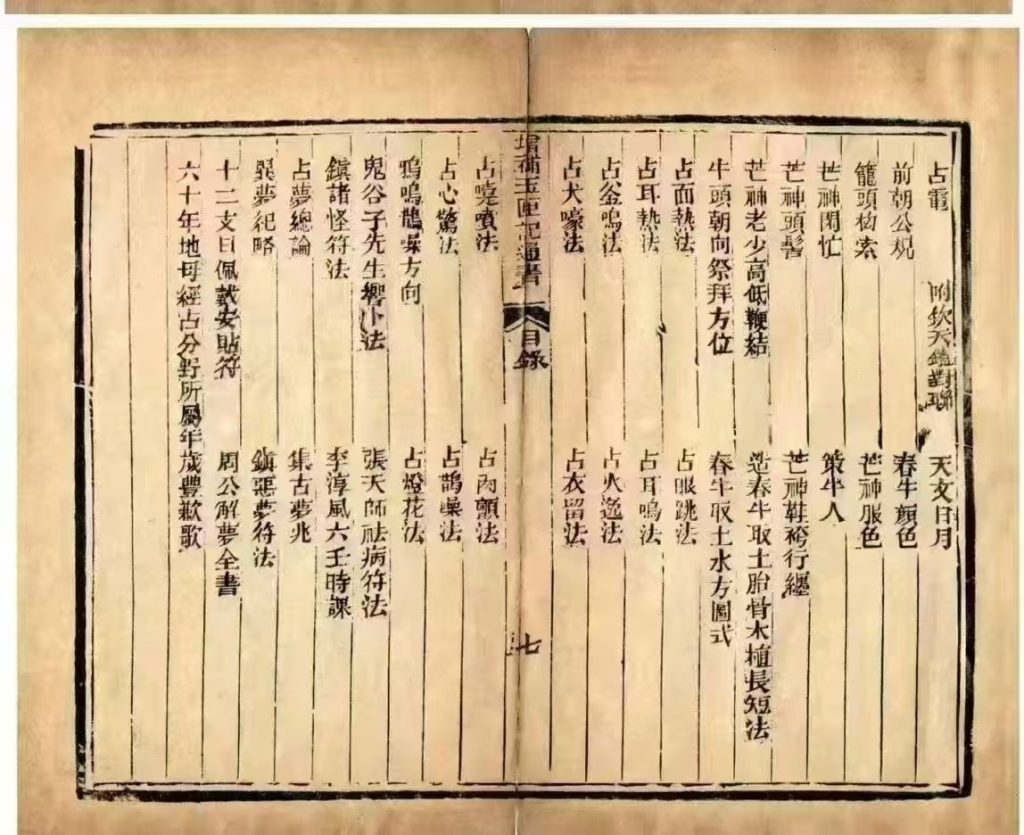 占電 附欽天監對聯 天文日月
前朝公規 春牛顏色
籠頭构索 芒神服色
芒神閑忙 策牛人
芒神頭髻 芒神鞋袴行纏
芒神老少高低鞭結 造春牛取土胎骨木植長短法
牛頭朝向祭拜方位 春牛取土水方圖式
占面熱法 占眼跳法
占耳熱法 占耳鳴法
占釜鳴法 占火逸法
占犬嚎法 占衣留法
增補玉匣記通書 目錄 七
占嚏噴法 占肉顫法
占心驚法 占鵲噪法
鴉鳴鵲噪方向 占燈花法
鬼谷子先生響卜法 張天師祛病符法
鎮諸怪符法 李淳風六壬時課
占夢總論 集古夢兆
異夢紀略 鎮惡夢符法
十二支日佩戴安貼符 周公解夢全書
六十年地母經占分野所屬年歲豐歉歌